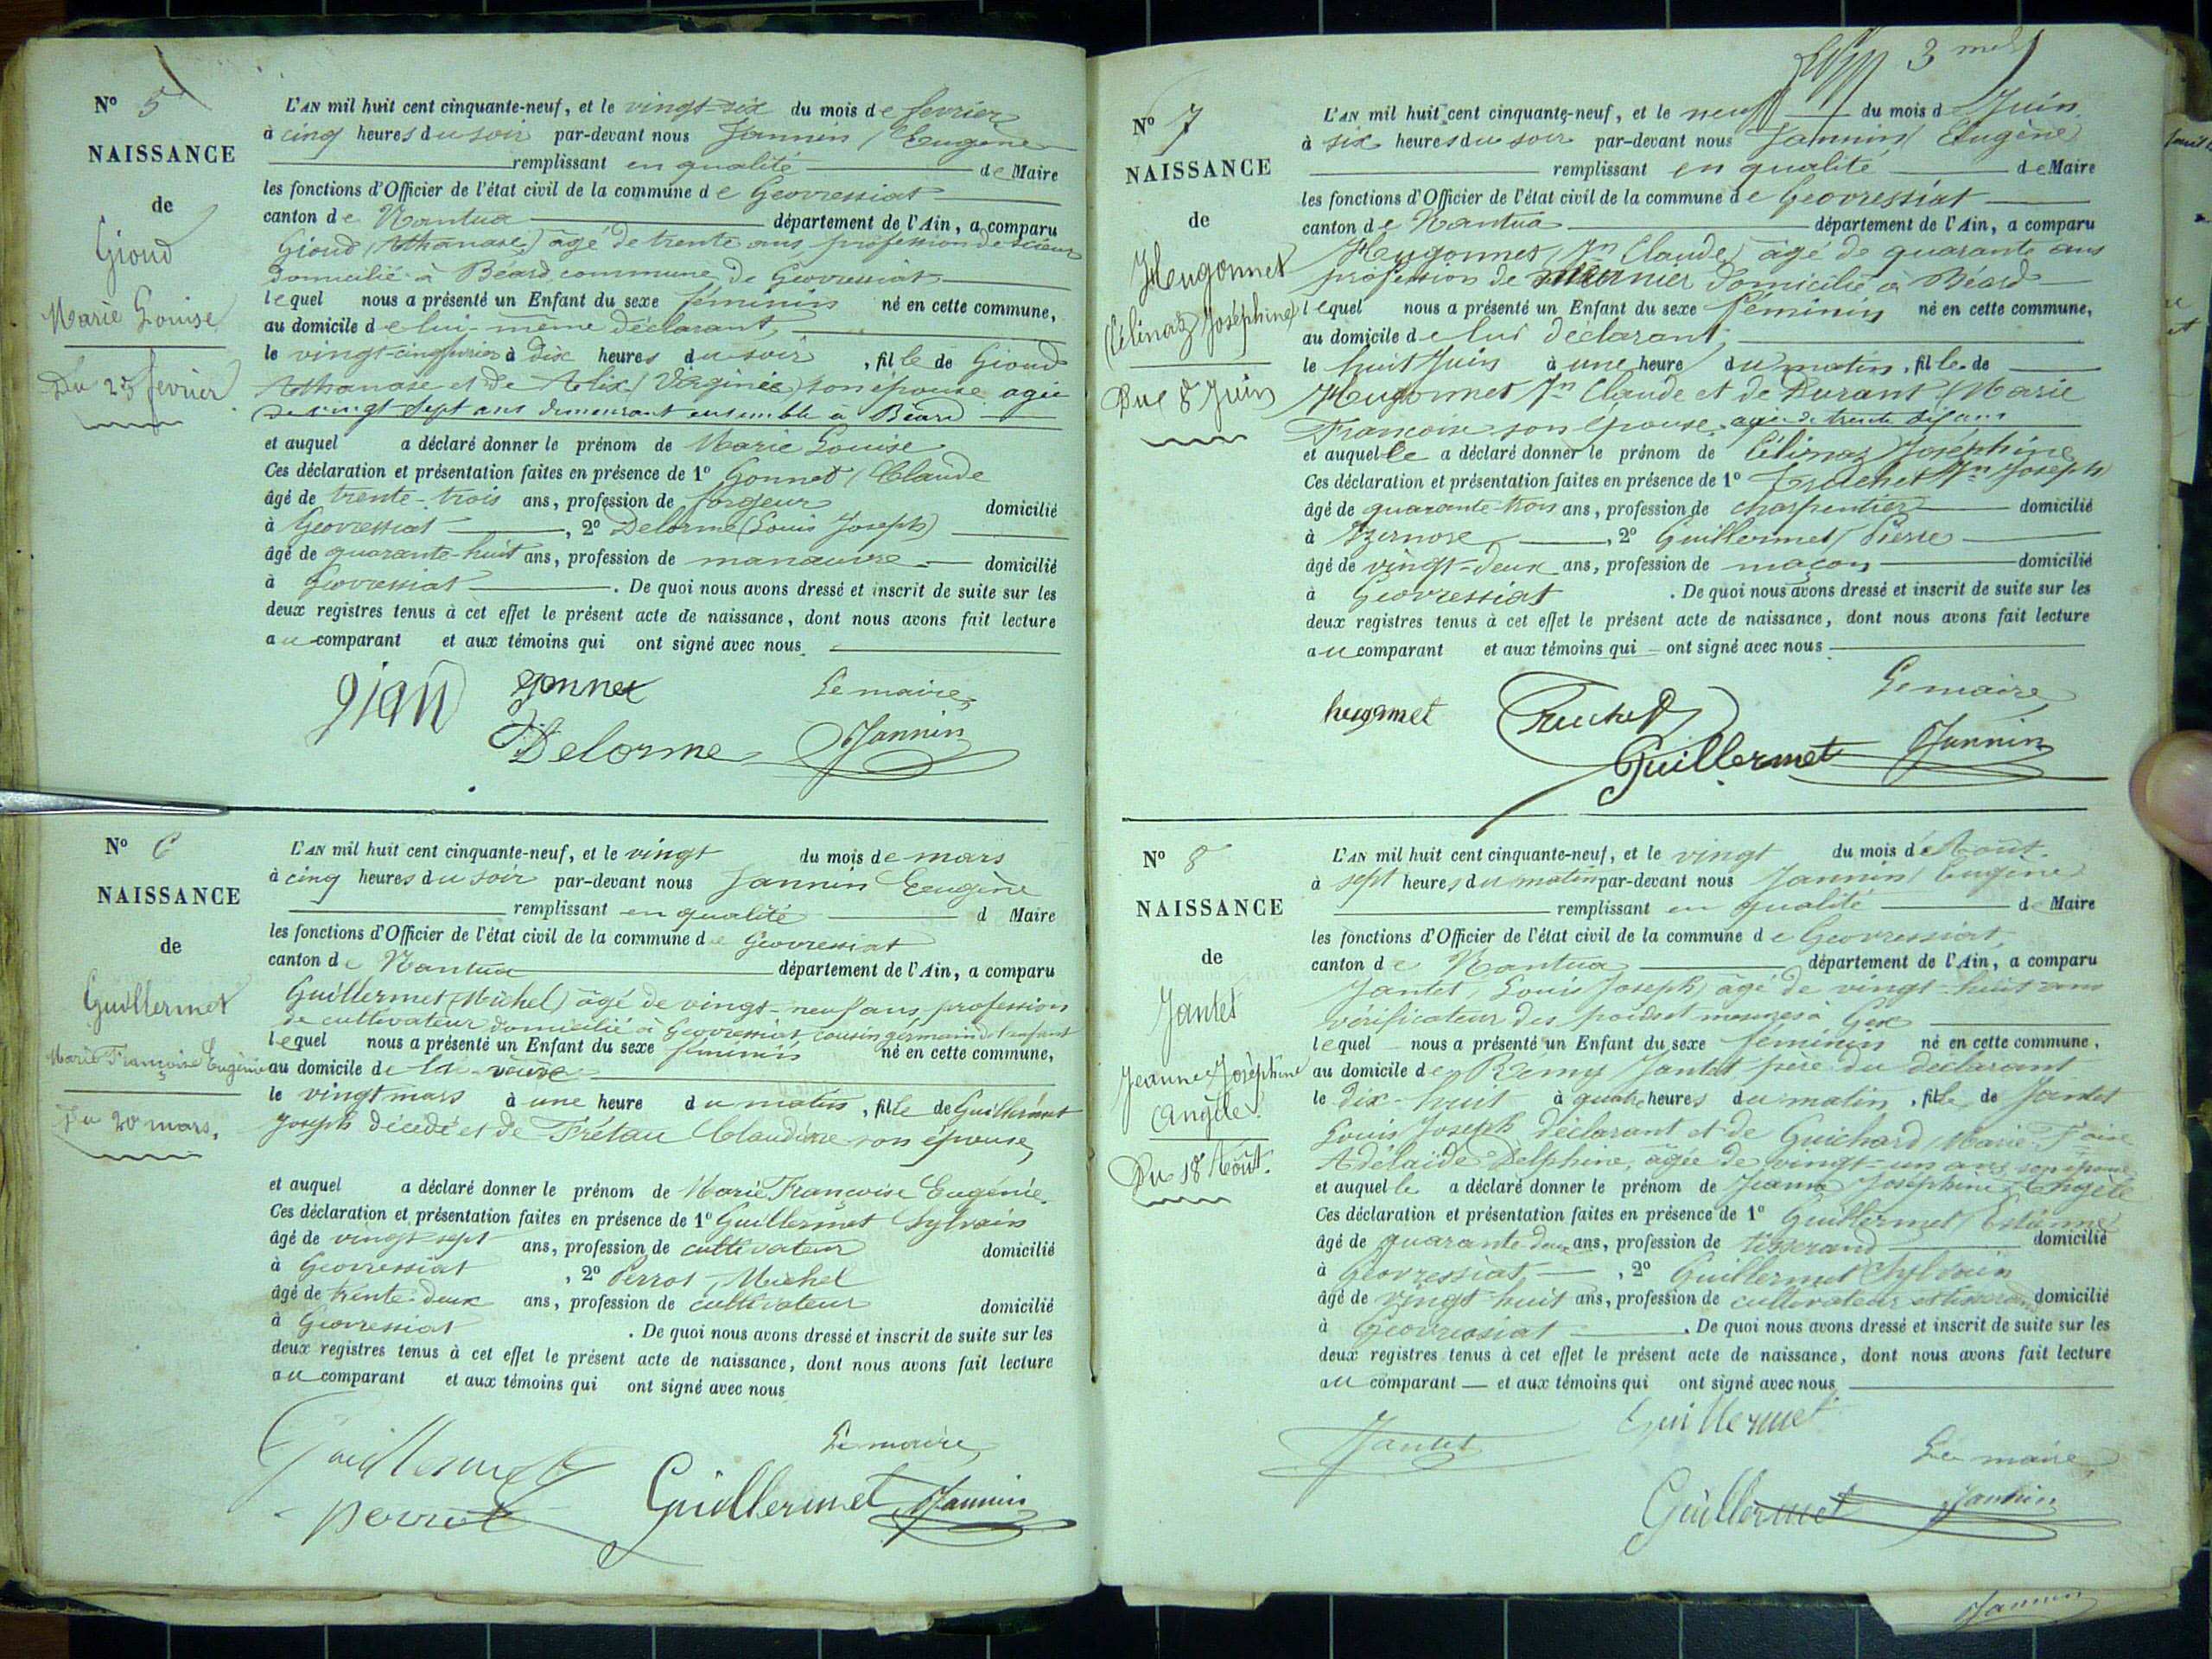 N° 5
NAISSANCE
de
Gioud
Marie Louise
Du 25 fevrier
L'AN mil huit cent cinquante-neuf, et le vingt-six du mois de fevrier
à cinq heures du soir par-devant nous Jannin (Eugène
remplissant en qualité de Maire
les fonctions d'Officier de l'état civil de la commune de Geovressiat
canton de Nantua département de l'Ain, a comparu
Gioud (Athanase) âgé de trente ans profession de scieur
domicilié à Béard commune de Geovressiat
lequel nous a présenté un Enfant du sexe féminin né en cette commune,
au domicile de lui-même déclarant,
le vingt-cinq fevrier à dix heures du soir, fille de Gioud
Athanase et de Alix (Virginie) son épouse agée
de vingt sept ans demeurant ensemble à Béard
et auquel a déclaré donner le prénom de Marie Louise
Ces déclaration et présentation faites en présence de 1° Gonnet (Claude
âgé de trente-trois ans, profession de forgeur domicilié
à Geovressiat, 2° Delorme (Louis Joseph)
âgé de quarante-huit ans, profession de manœuvre domicilié
à Geovressiat. De quoi nous avons dressé et inscrit de suite sur les
deux registres tenus à cet effet le présent acte de naissance, dont nous avons fait lecture
au comparant et aux témoins qui ont signé avec nous
gonnet Le maire,
Delorme Jannin
N° 6
NAISSANCE
de
Guillermet
Marie Françoise Eugénie
Du 20 mars,
L'AN mil huit cent cinquante-neuf, et le vingt du mois de mars
à cinq heures du soir par-devant nous Jannin Eugène
remplissant en qualité d Maire
les fonctions d'Officier de l'état civil de la commune de Geovressiat
canton de Nantua département de l'Ain, a comparu
Guillermet (Michel) âgé de vingt-neuf ans profession
de cultivateur domicilié à Geovressiat, cousin germain de l'enfant
lequel nous a présenté un Enfant du sexe féminin né en cette commune,
au domicile de la veuve
le vingt mars à une heure du matin, fille de Guillermet
Joseph décédé et de Frétau Claudine son épouse,
et auquel a déclaré donner le prénom de Marie Françoise Eugénie
Ces déclaration et présentation faites en présence de 1° Guillermet Sylvain
âgé de vingt sept ans, profession de cultivateur domicilié
à Geovressiat, 2° Perrot, Michel
âgé de trente-deux ans, profession de cultivateur domicilié
à Geovressiat. De quoi nous avons dressé et inscrit de suite sur les
deux registres tenus à cet effet le présent acte de naissance, dont nous avons fait lecture
au comparant et aux témoins qui ont signé avec nous
Guillermet Le maire,
perrot Guillermet Jannin
3 me
N° 7
NAISSANCE
de
Hugonnet
(Célinaz Joséphine)
Du 8 Juin
L'AN mil huit cent cinquante-neuf, et le neuf du mois d Juin
à six heures du soir par-devant nous Jannin (Eugène)
remplissant en qualité de Maire
les fonctions d'Officier de l'état civil de la commune de Geovressiat
canton de Nantua département de l'Ain, a comparu
Hugonnet (Jn Claude) âgé de quarante ans
profession de meunier domicilié à Béard
lequel nous a présenté un Enfant du sexe féminin né en cette commune,
au domicile de lui déclarant,
le huit Juin à une heure du matin, fille de
Hugonnet Jn Claude et de Durant (Marie
Françoise son épouse, agée de trente six ans
et auquelle a déclaré donner le prénom de Célinaz Joséphine
Ces déclaration et présentation faites en présence de 1° Truchet Jn Joseph
âgé de quarante-trois ans, profession de charpentier domicilié
à Izernore, 2° Guillermet (Pierre
âgé de vingt-deux ans, profession de maçon domicilié
à Geovressiat. De quoi nous avons dressé et inscrit de suite sur les
deux registres tenus à cet effet le présent acte de naissance, dont nous avons fait lecture
au comparant et aux témoins qui ont signé avec nous
Le maire
hugonnet Truchet
Guillermet Jannin
N° 8
NAISSANCE
de
Jantet
Jeanne Joséphine
Angèle
Du 18 Août.
L'AN mil huit cent cinquante-neuf, et le vingt du mois d'Août
à sept heures du matin par-devant nous Jannin (Eugène
remplissant en qualité de Maire
les fonctions d'Officier de l'état civil de la commune de Geovressiat
canton de Nantua département de l'Ain, a comparu
Jantet, Louis Joseph) âgé de vingt-huit ans
vérificateur des poids et mesures à Gex
lequel nous a présenté un Enfant du sexe féminin né en cette commune,
au domicile de Remy Jantet père du déclarant
le dix-huit à quatre heures du matin, fille de Jantet
Louis Joseph déclarant et de Guichard (Marie Foise
Adélaïde Delphine, agée de vingt-un ans, son épouse
et auquelle a déclaré donner le prénom de Jeanne Joséphine Angèle
Ces déclaration et présentation faites en présence de 1° Guillermet (Estienne
âgé de quarante deux ans, profession de tisserand domicilié
à Geovressiat, 2° Guillermet Sylvain
âgé de vingt-huit ans, profession de cultivateur et tisserand domicilié
à Geovressiat. De quoi nous avons dressé et inscrit de suite sur les
deux registres tenus à cet effet le présent acte de naissance, dont nous avons fait lecture
au comparant et aux témoins qui ont signé avec nous
Jantet Guillermet
Le maire,
Guillermet Jannin
Jannin